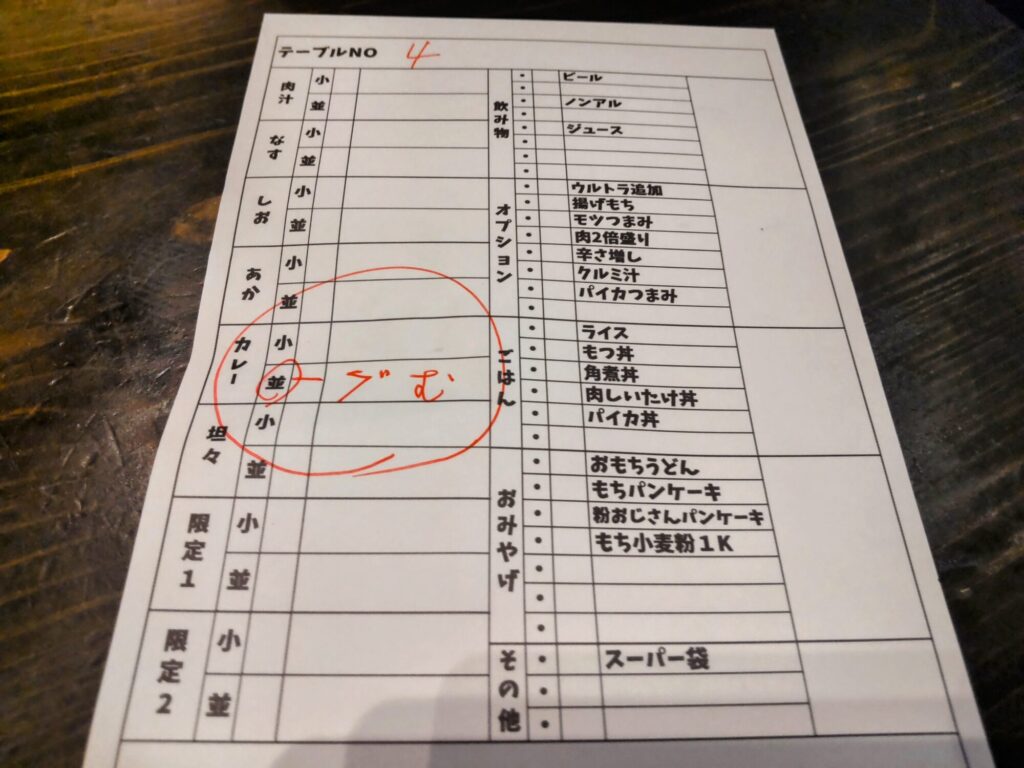 テーブルNO 4
肉汁
小
並
なす
小
並
しお
小
並
あか
小
並
カレー
小
並
坦々
小
並
限定1
小
並
限定2
小
並
飲み物
・ビール
・
・ノンアル
・
・ジュース
・
・
・
オプション
・ウルトラ追加
・揚げもち
・モツつまみ
・肉2倍盛り
・辛さ増し
・クルミ汁
・パイカつまみ
・
ごはん
・ライス
・もつ丼
・角煮丼
・肉しいたけ丼
・パイカ丼
・
おみやげ
・おもちうどん
・もちパンケーキ
・粉おじさんパンケーキ
・もち小麦粉1K
・
・
・
その他
・スーパー袋
・
・